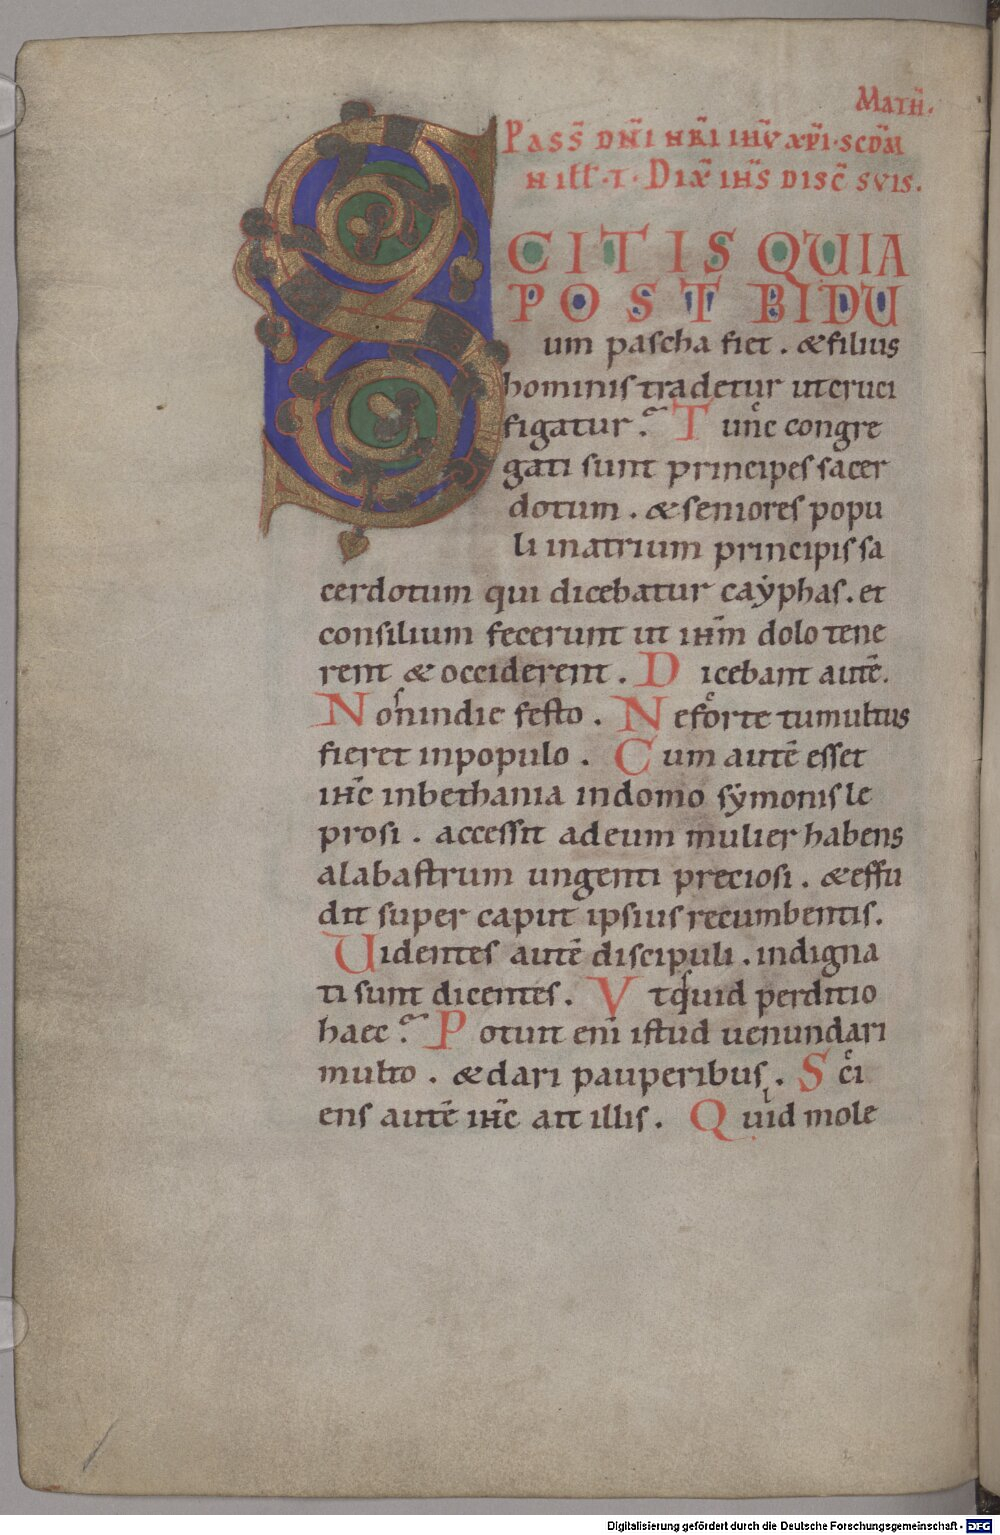 MATH̄.
PASS̄ DN̄I NR̄I IHV̄ XP̄I · SCDM̄
N ILL · T · DIX̄ IHS̄ DISC̄ SVIS.
S CITIS QUIA
POST BIDU
um pascha fiet . & filius
hominis tradetur ut cruci
figatur. Tunc̄ congre
gati sunt principes sacer
dotum . & seniores popu
li in atrium principis sa
cerdotum qui dicebatur caẏphas . et
consilium fecerunt ut ihm̄ dolo tene
rent & occiderent . Dicebant autē.
Non in die festo . Ne forte tumultus
fieret in populo . Cum autē esset
ihc̄ in bethania in domo sẏmonis le
prosi . accessit ad eum mulier habens
alabastrum ungenti preciosi . & effu
dit super caput ipsius recumbentis.
Uidentes autē discipuli . indigna
ti sunt dicentes . Vt quid perditio
haec. Potuit eni̅ istud uenundari
multo . & dari pauperibus . Sci
ens autē ihc̄ ait illis . Quid mole
Digitalisierung gefördert durch die Deutsche Forschungsgemeinschaft - DFG